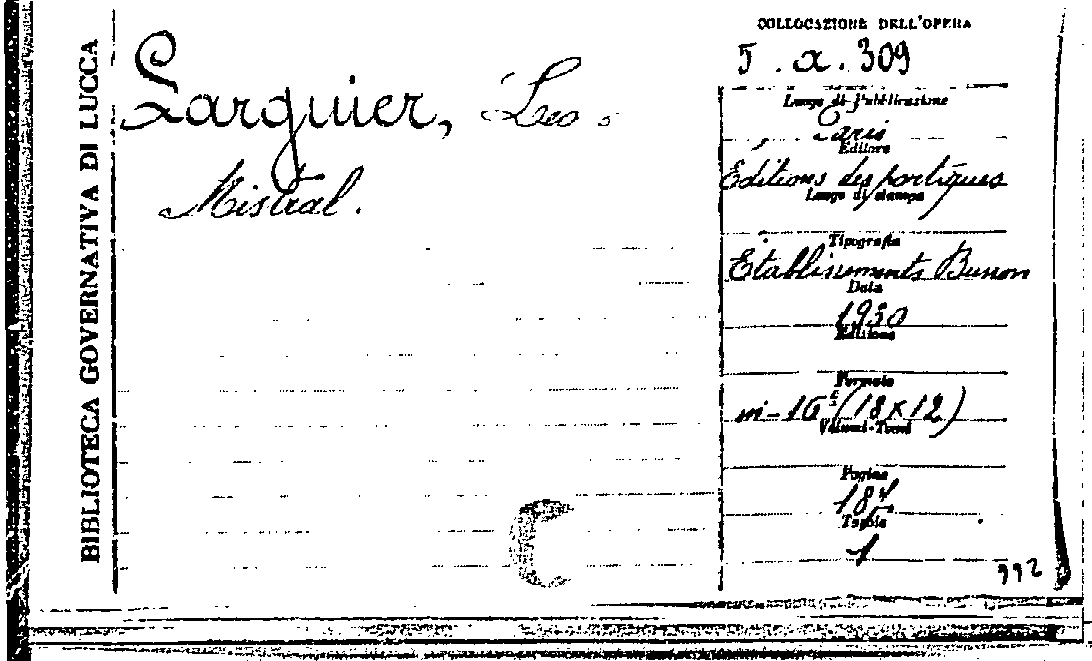 BIBLIOTECA GOVERNATIVA DI LUCCA
Larguier, Leo.
Mistral.
COLLOCAZIONE DELL'OPERA
5. a. 309
Luogo di pubblicazione
Paris
Editore
Éditions des portiques
Luogo di stampa
Tipografia
Établissements Busson
Data
1930
Edizione
Formato
in-16º (18 x 12)
Volumi-Tomi
Pagine
184
Tavole
1
992
C